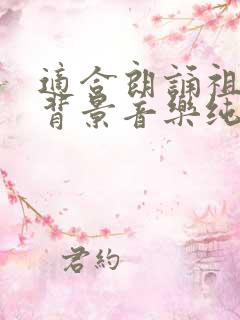 適合朗誦祖
背景音樂純
君約